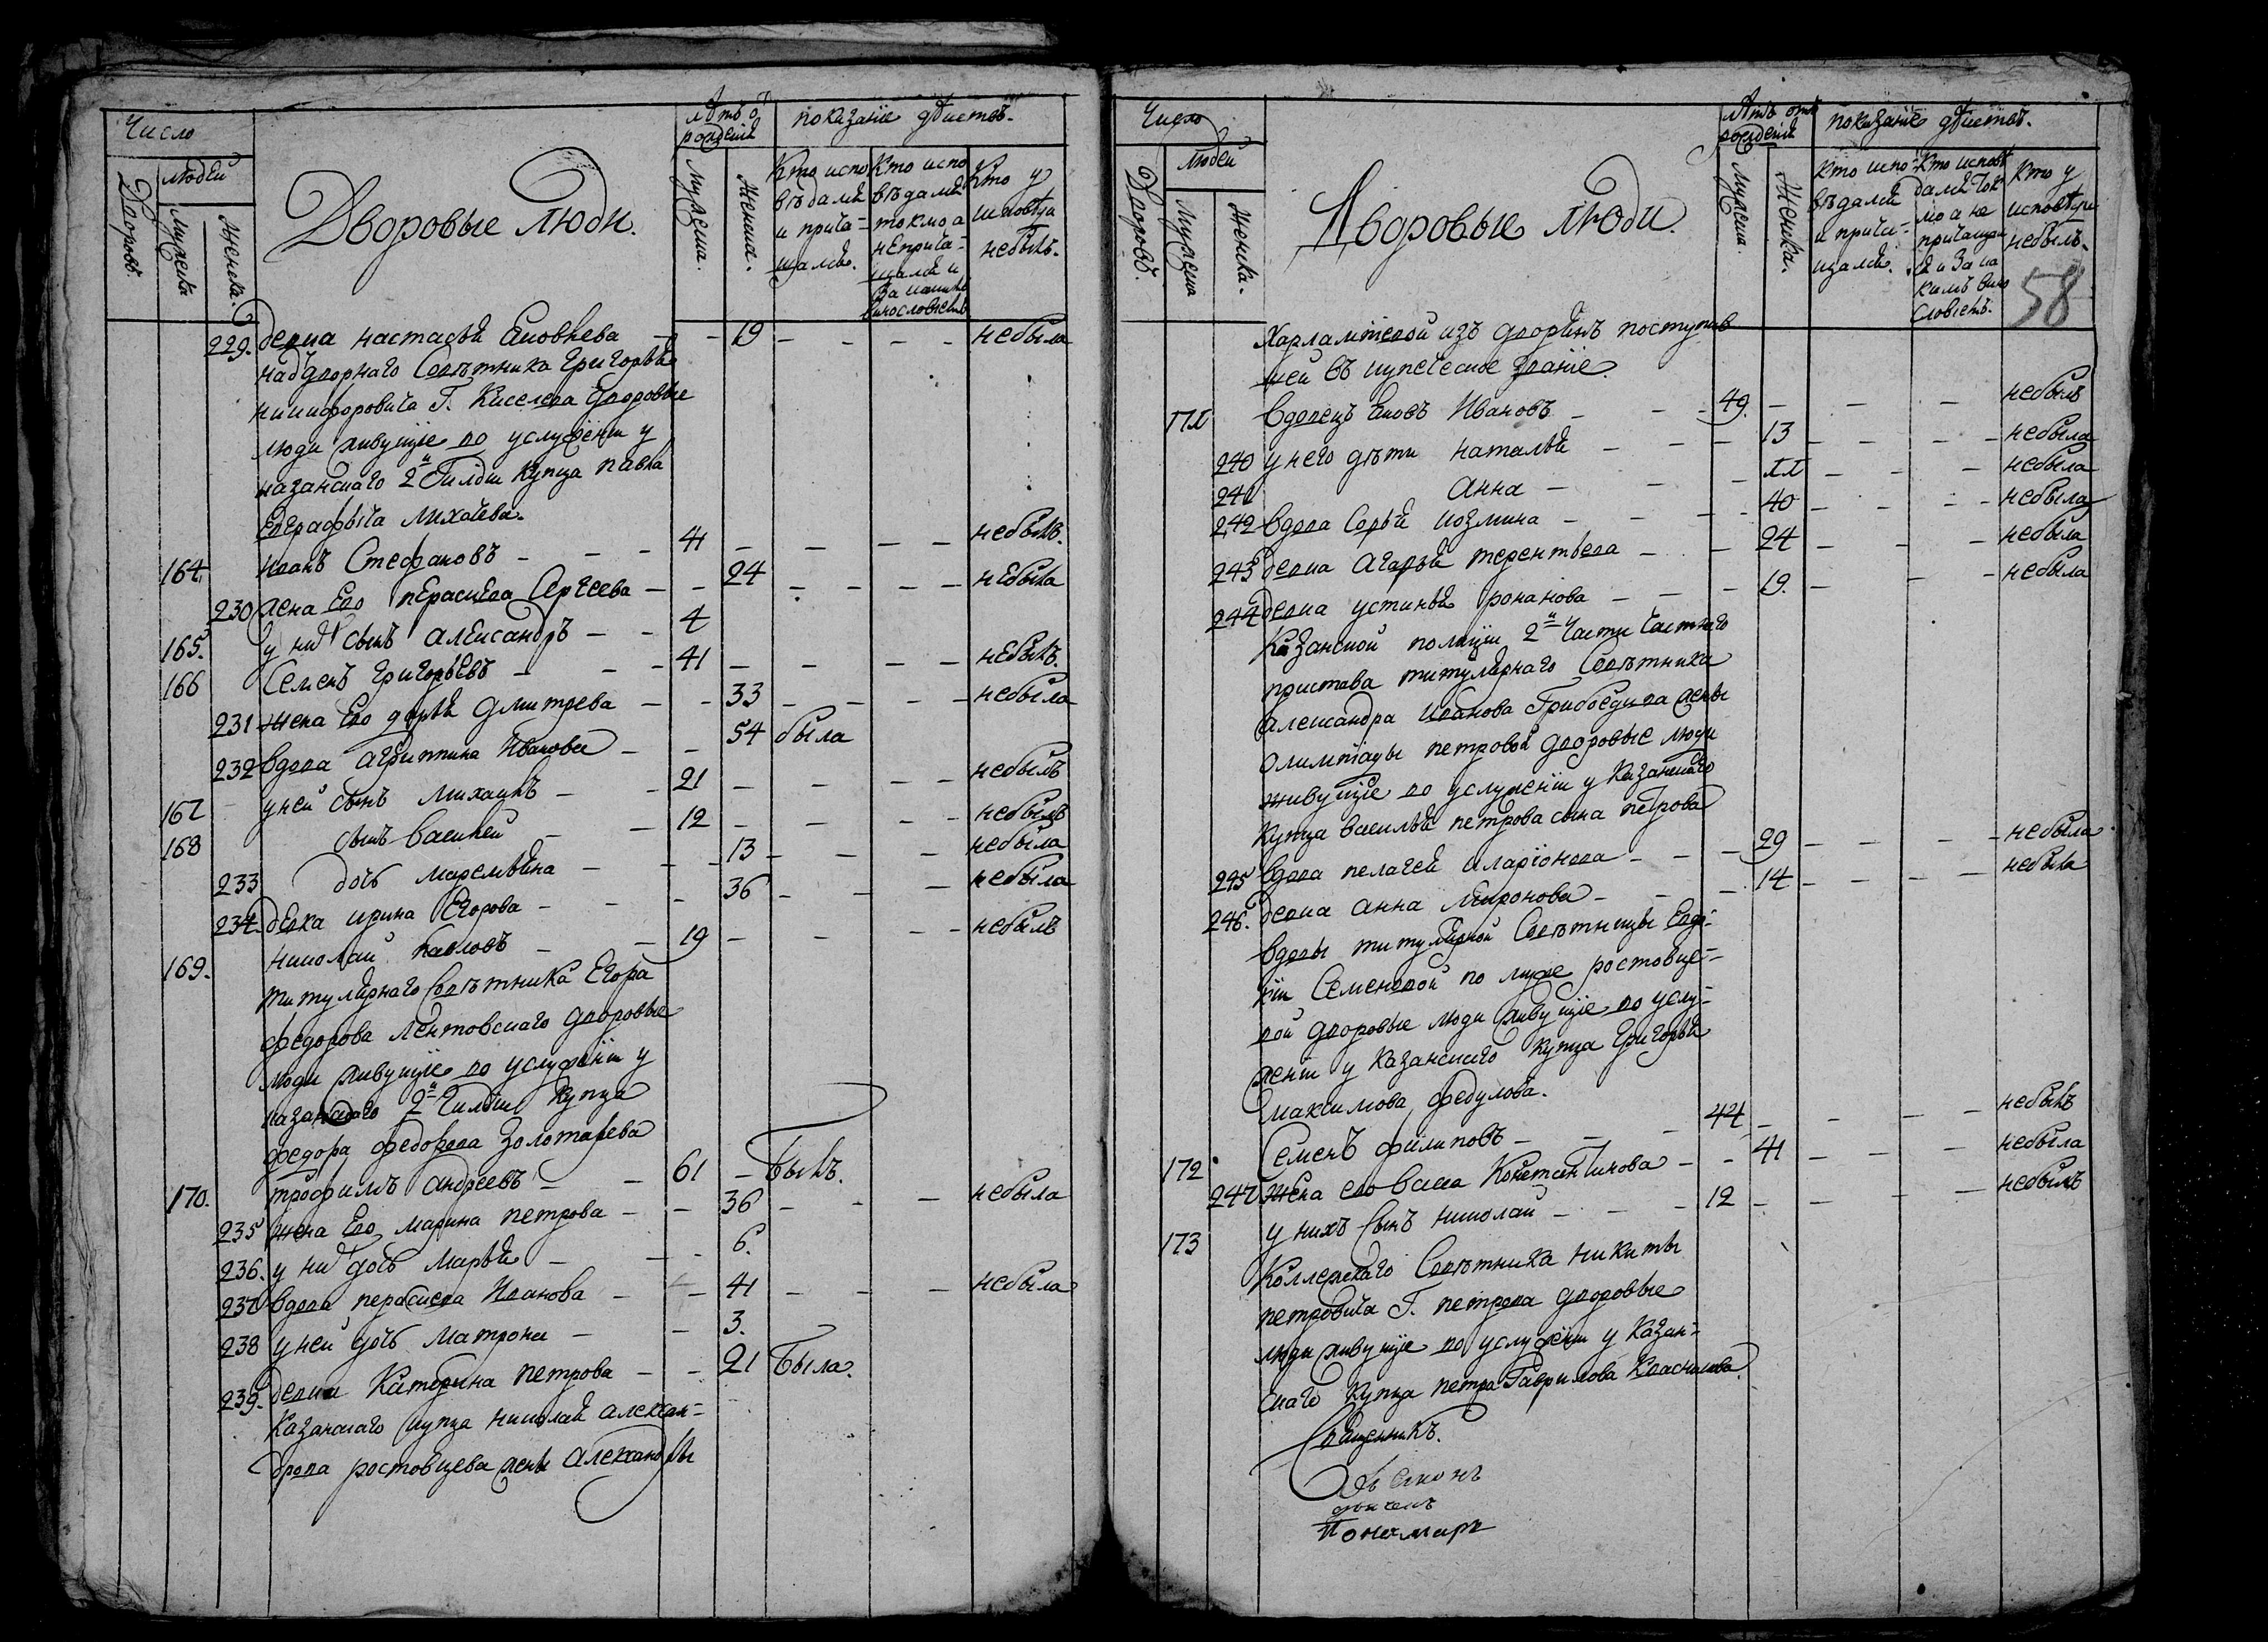 Число
людей
Дворовъ.
Мужеска
Женска.
Дворовые Люди.
Лѣтъ о рожденїя
Мужеска.
Женска.
показанїе дѣйствъ.
Кто испо
вѣдалися
и прича=
щались.
Кто испо
вѣдались
токмо а
неприча=
щались и
За какимъ
винословїемъ
Кто у
исповѣди
небылъ.
229. девка настасья Яковлева — — 19 — — — — небыла
надворнаго Советника Григорья
никифоровича Г. Киселева дворовые
люди живущїе во услуженїи у
казанскаго 2й Гилдїи купца павла
Евграфыча Михаева.
164. иванъ Стефановъ — — — 41 — — — — небылъ.
230 жена Его пераскева Сергеева — — 24 — — — — небыла
165. у них сынъ александръ — — 4
166 Семенъ григорьевъ — — — 41 — — — — небылъ.
231 жена Его дарья дмитрева — — 33 — — — — небыла
232 вдова агриппина Иванова — — 54 была
167 у ней сынъ Михаилъ — — 21 — — — — небылъ
168 сынъ василей — — 12 — — — — небылъ
233 дочь маремьяна — — — 13 — — — небыла
234. девка ирина Егорова — — — 36 — — — небыла
169. николай павловъ — — 19 — — — — небылъ
титулярнаго Советника Егора
федорова лентовскаго дворовые
люди живущїе во услуженїи у
казанскаго 2й Гилдїи Купца
федора федорова Золотарева
170. трофимъ андреевъ — — 61 — былъ.
235 жена Его марина петрова — — 36 — — — небыла
236. у них дочь марья — — — 6.
237 вдова пераскева Иванова — — 41 — — — небыла
238 у ней дочь матрона — — 3.
239. девка Катерина петрова — — 21 была.
Казанскаго купца николая алексан=
дрова ростовцева жены александры
Число
людей
Дворовъ.
Мужеска
Женска.
Дворовые люди.
Лѣтъ отъ рожденїя
Мужеска.
Женска.
показанїе дѣйствъ.
Кто испо=
вѣдались
и прича=
щались.
Кто исповѣ
дались ток
мо а не
причащали
ся и За ка
кимъ вино
словїемъ.
Кто у
исповѣди
небылъ.
58
Харлампїевой изъ дворянъ поступив
шей въ купеческое званїе.
171 вдовецъ Яковъ Ивановъ — — — 49. — — — небылъ
240 у него дѣти наталья — — — 13 — — — — небыла
241 анна — — — 11 — — — небыла
242 вдова Софья козмина — — — 40 — — — — небыла
243 девка агафья терентьева — — 24 — — — небыла
244 девка устинья романова — — — 19. — — — небыла
Казанской полицїи 2й Части Частнаго
пристава титулярнаго Советника
александра Иванова Грибоедова жены
олимпїады петровой дворовые люди
живущїе во услуженїи у Казанскаго
купца василья петрова сына петрова
245 вдова пелагея иларїонова — — — 29 — — — — небыла
246. девка анна миронова — — — 14 — — — — небыла
вдовы титулярной Советницы Евдо=
кїи Семеновой по муже ростовце=
вой дворовые люди живущїе во услу=
женїи у казанскаго купца Григорья
максимова федулова.
172 Семенъ филиповъ — — — 44 — — — — небылъ
247 жена его васса Константинова — — 41 — — — небыла
173 у нихъ сынъ николай — — — 12 — — — — небылъ
Коллежскаго Советника никиты
петровича Г. петрова дворовые
люди живущїе во услуженїи у Казан=
скаго купца петра Гаврилова Краснакова.
Священникъ.
Дьяконъ
дьячекъ
Пономарь